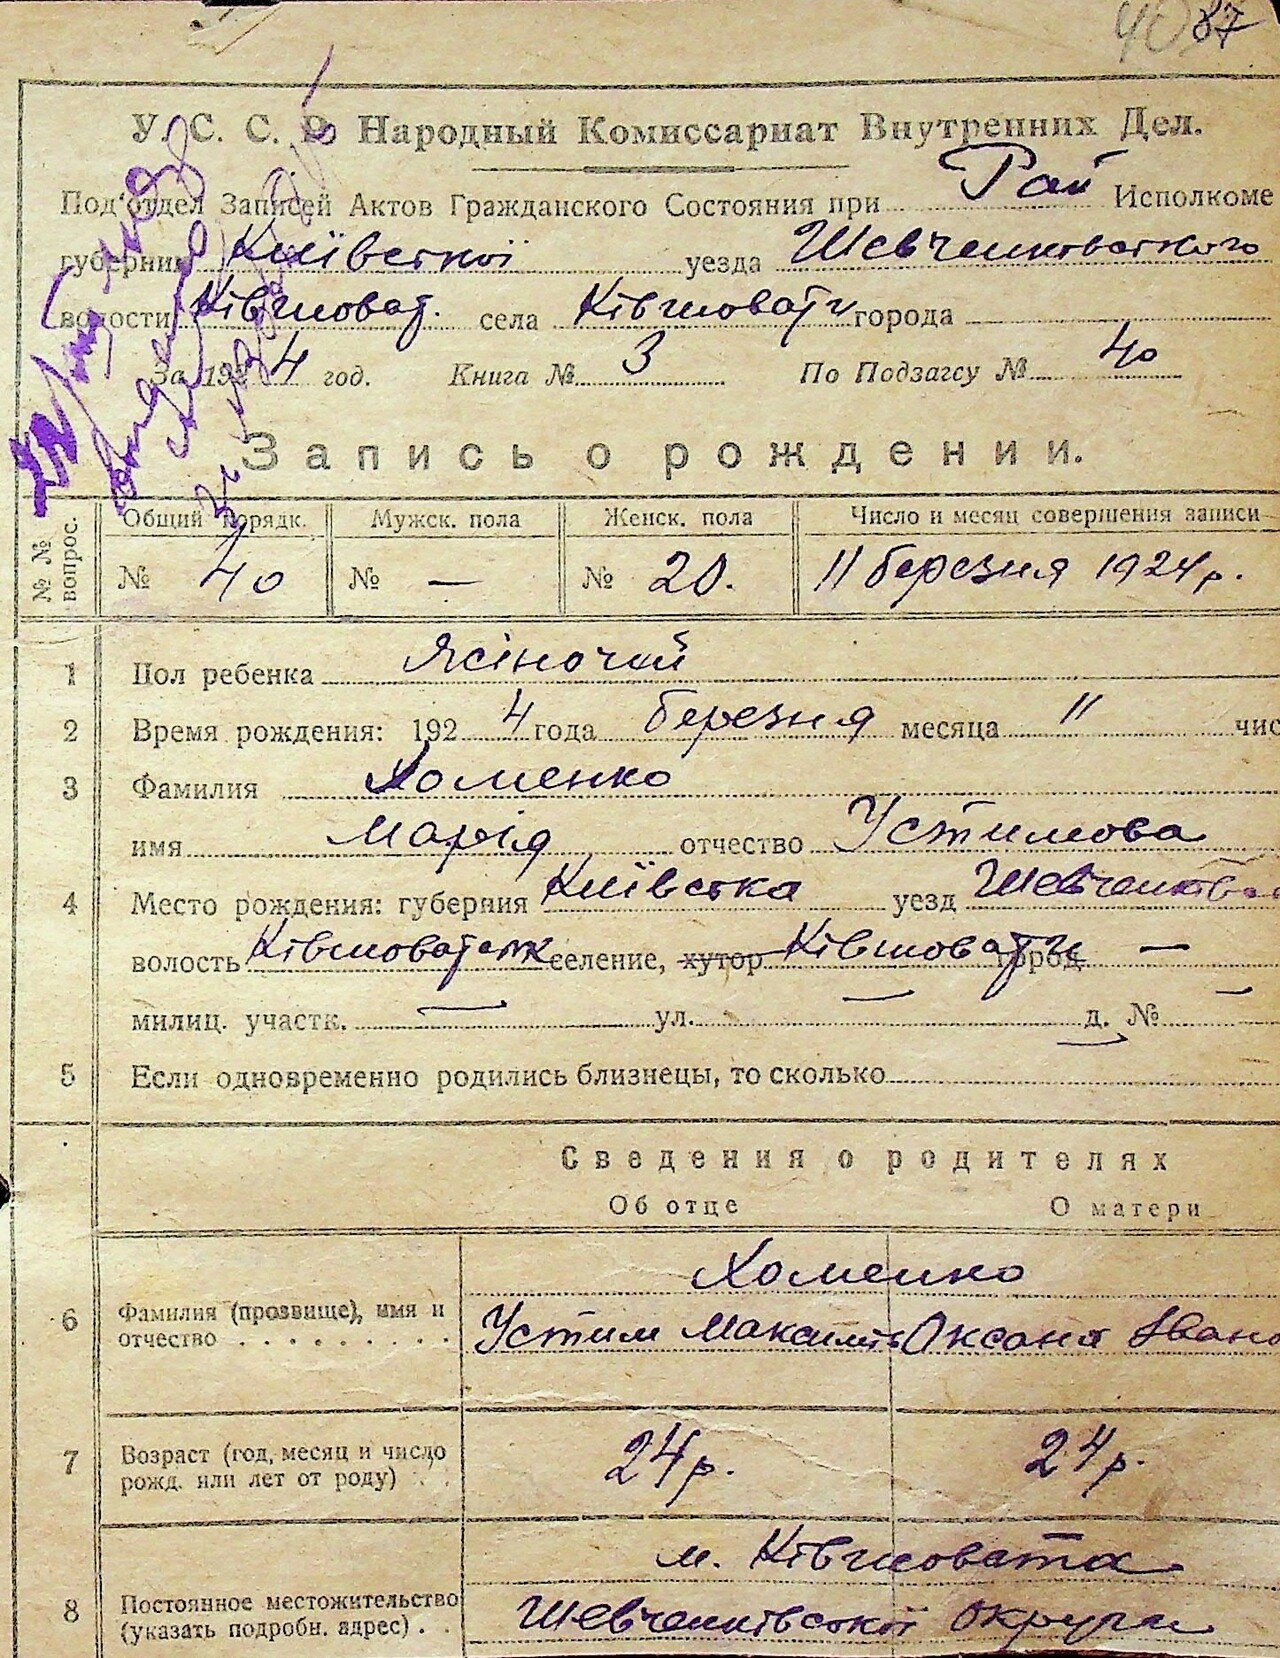 87
У. С. С. Р. Народный Комиссариат Внутренних Дел.
Под'отдел Записей Актов Гражданского Состояния при Рай Исполкоме
губернии Київської уезда Шевченківського
волости Ківшоват. села Ківшовати города
За 1924 год. Книга № 3 По Подзагсу № 40
Запись о рождении.
№ № вопрос. Общий порядк. Мужск. пола Женск. пола Число и месяц совершения записи
№ 40 № — № 20. 11 березня 1924 р.
1 Пол ребенка жіночий
2 Время рождения: 1924 года березня месяца 11 чис
3 Фамилия Хоменко
имя Марія отчество Устимова
4 Место рождения: губерния Київська уезд Шевченківськ
волость Ківшоватськ селение, хутор Ківшовати город —
милиц. участк. — ул. — д. № —
5 Если одновременно родились близнецы, то сколько
Сведения о родителях
Об отце О матери
Хоменко
6 Фамилия (прозвище), имя и Устим Максимів Оксана Івано
отчество
7 Возраст (год, месяц и число 24 р. 24 р.
рожд. или лет от роду)
м. Ківшовата
8 Постоянное местожительство Шевченківської округи
(указать подробн. адрес)